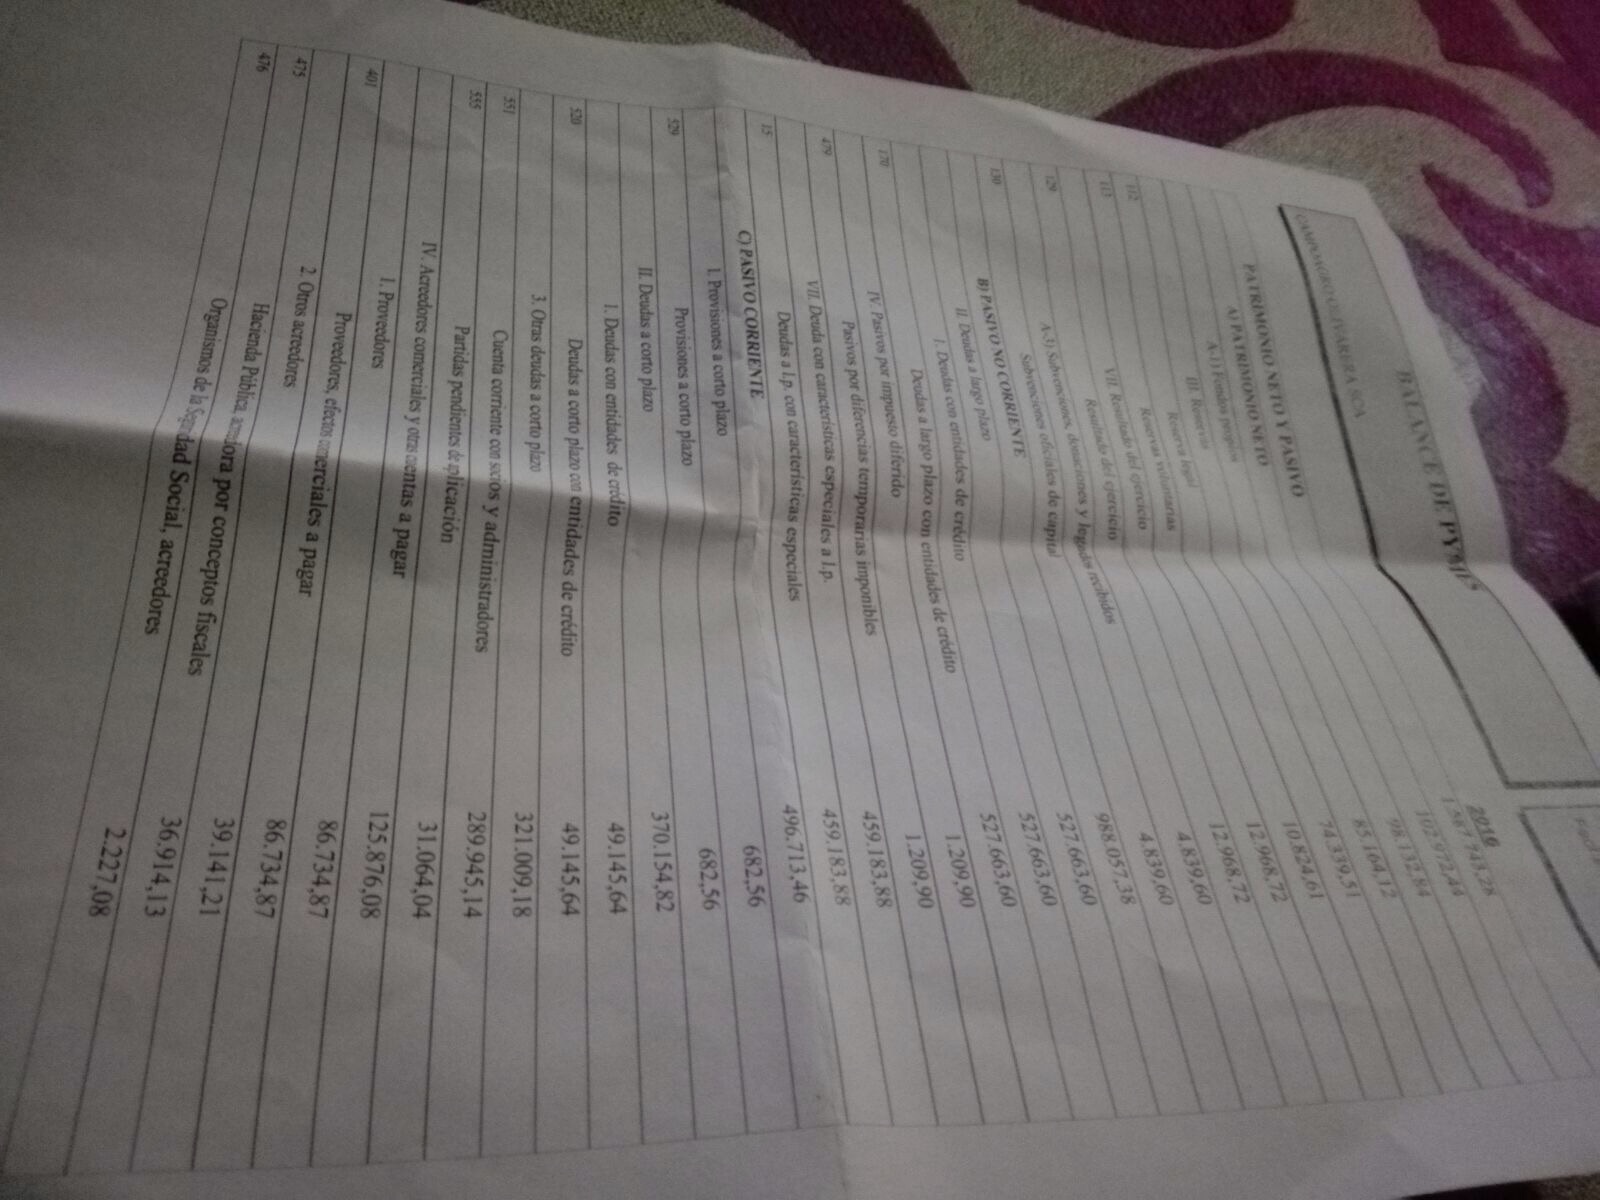 BALANCE DE PYMES
CAMPOAGRO OLIVARERA SCA
PATRIMONIO NETO Y PASIVO 1.587.743,28
A) PATRIMONIO NETO 102.972,44
A-1) Fondos propios 98.132,84
III. Reservas 85.164,12
112 Reserva legal 74.339,51
113 Reservas voluntarias 10.824,61
VII. Resultado del ejercicio 12.968,72
129 Resultado del ejercicio 12.968,72
A-3) Subvenciones, donaciones y legados recibidos 4.839,60
130 Subvenciones oficiales de capital 4.839,60
B) PASIVO NO CORRIENTE 988.057,38
II. Deudas a largo plazo 527.663,60
1. Deudas con entidades de crédito 527.663,60
170 Deudas a largo plazo con entidades de crédito 527.663,60
IV. Pasivos por impuesto diferido 1.209,90
479 Pasivos por diferencias temporarias imponibles 1.209,90
VII. Deuda con características especiales a l.p. 459.183,88
15 Deudas a l.p. con características especiales 459.183,88
C) PASIVO CORRIENTE 496.713,46
I. Provisiones a corto plazo 682,56
529 Provisiones a corto plazo 682,56
II. Deudas a corto plazo 370.154,82
1. Deudas con entidades de crédito 49.145,64
520 Deudas a corto plazo con entidades de crédito 49.145,64
3. Otras deudas a corto plazo 321.009,18
551 Cuenta corriente con socios y administradores 289.945,14
555 Partidas pendientes de aplicación 31.064,04
IV. Acreedores comerciales y otras cuentas a pagar 125.876,08
1. Proveedores 86.734,87
401 Proveedores, efectos comerciales a pagar 86.734,87
2. Otros acreedores 39.141,21
475 Hacienda Pública, acreedora por conceptos fiscales 36.914,13
476 Organismos de la Seguridad Social, acreedores 2.227,08